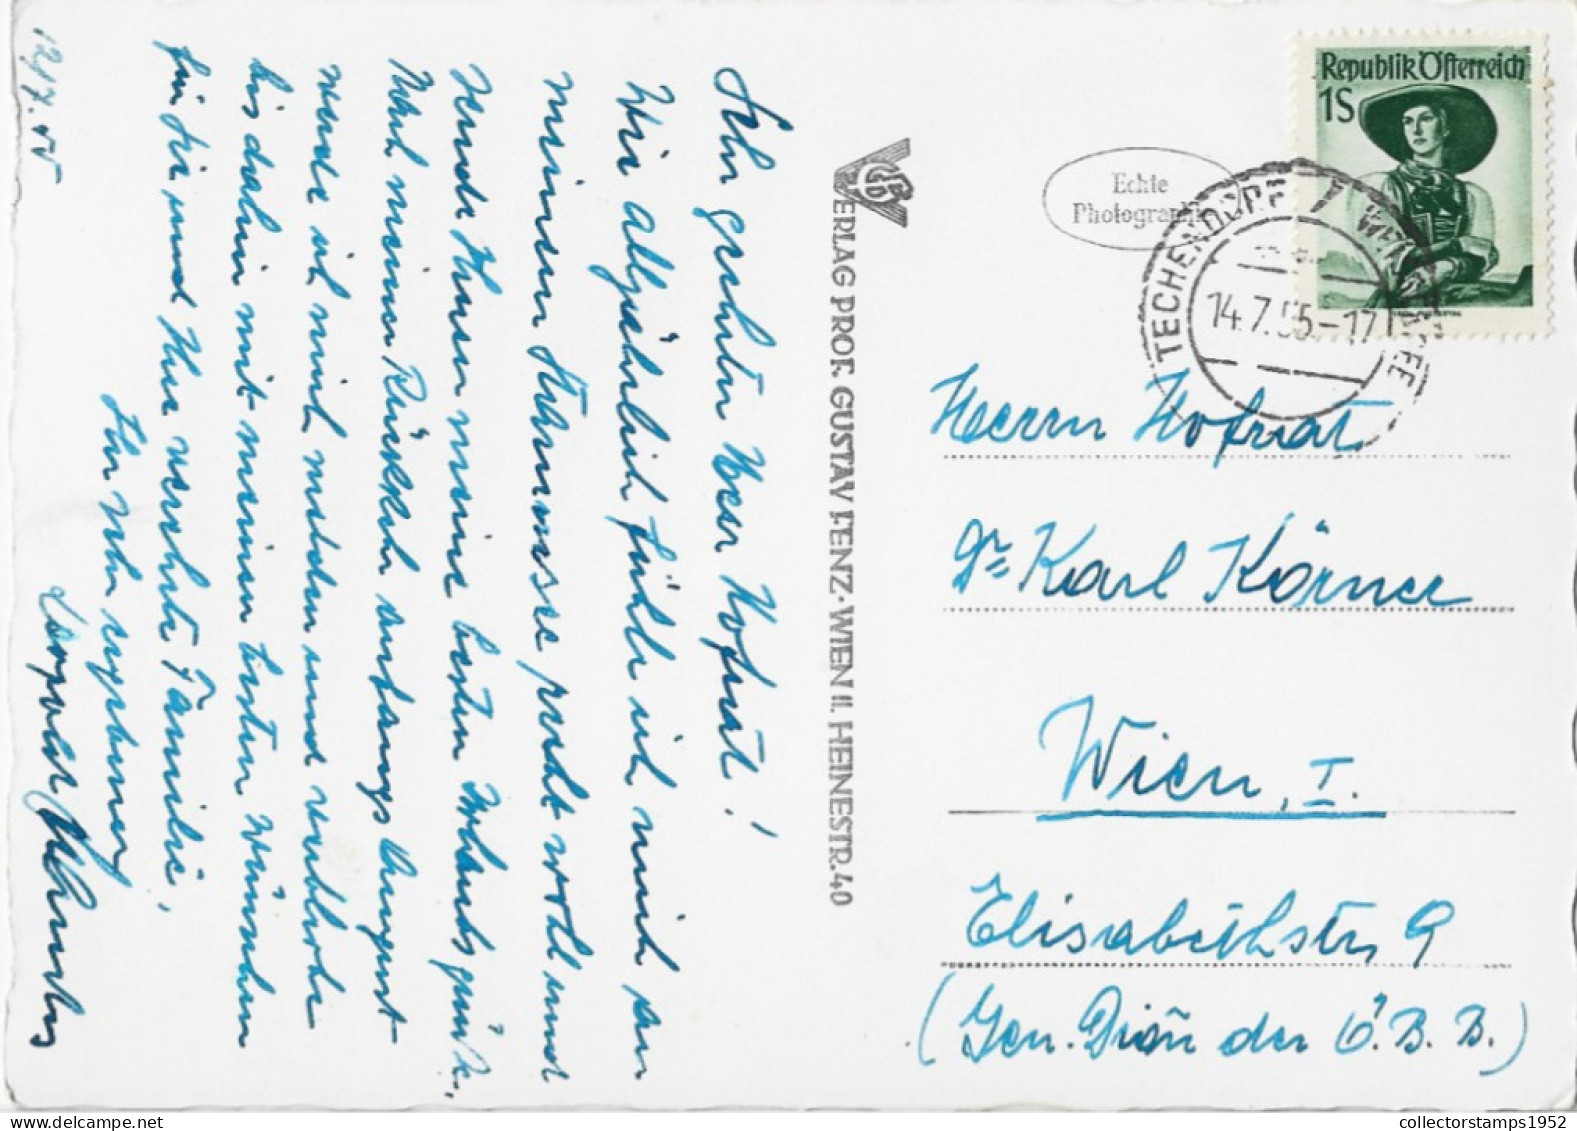 12/7.55
Sehr geehrter Herr Hofrat!
Wie alljährlich fühle ich mich an
meinem Stammsee recht wohl und
sende Ihnen meine besten Urlaubsgrüße.
Nach meiner Rückkehr anfangs August
werde ich mich melden und verbleibe
bis dahin mit meinen besten Wünschen
für Sie und Ihre verehrte Familie,
Ihr sehr ergebener
Leopold
VERLAG PROF. GUSTAV FENZ·WIEN II. HEINESTR. 40
Echte
Photographie
Republik Österreich
1S
TECHENDORF / WEISSENSEE
14.7.55-17
Herrn Hofrat
Dr Karl Körner
Wien, I.
Elisabethstr. 9
(Gen. Dion der Ö.B.B.)
collectorstamps1952